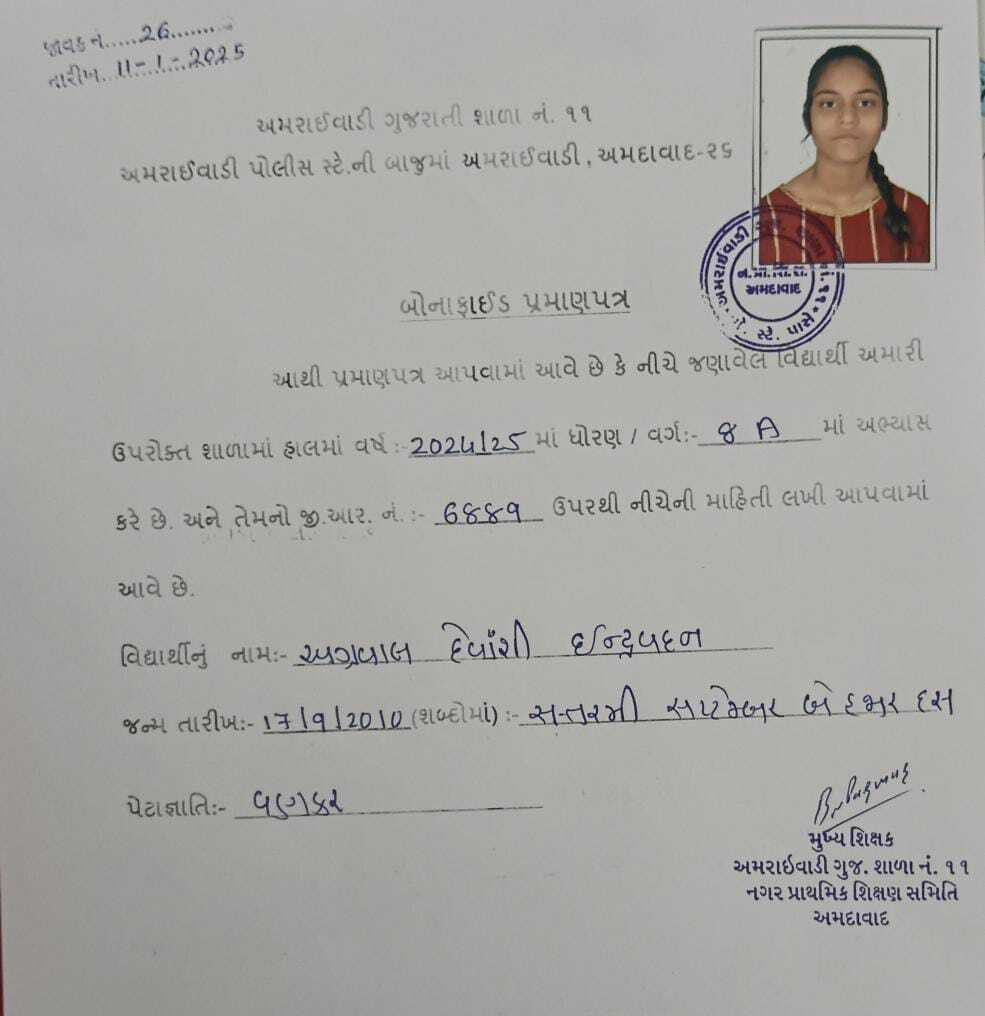 જાવક નં.....26........
તારીખ..11-1-2025
અમરાઈવાડી ગુજરાતી શાળા નં. ૧૧
અમરાઈવાડી પોલીસ સ્ટે.ની બાજુમાં અમરાઈવાડી, અમદાવાદ-૨૬
અમરાઈવાડી ગુજ. શાળા નં.૧૧
ન.પ્રા.શિ.સ.
અમદાવાદ
પો. સ્ટે. પાસે
બોનાફાઈડ પ્રમાણપત્ર
આથી પ્રમાણપત્ર આપવામાં આવે છે કે નીચે જણાવેલ વિદ્યાર્થી અમારી
ઉપરોક્ત શાળામાં હાલમાં વર્ષ :- 2024/25 માં ધોરણ / વર્ગ:- 8 A માં અભ્યાસ
કરે છે. અને તેમનો જી.આર. નં. :- 6889 ઉપરથી નીચેની માહિતી લખી આપવામાં
આવે છે.
વિદ્યાર્થીનું નામ:- અગ્રવાલ દેવાંશી ઇન્દ્રવદન
જન્મ તારીખ:- 17/9/2010 (શબ્દોમાં) :- સત્તરમી સપ્ટેમ્બર બે હજાર દસ
પેટાજ્ઞાતિ:- વણકર
મુખ્ય શિક્ષક
અમરાઇવાડી ગુજ. શાળા નં. ૧૧
નગર પ્રાથમિક શિક્ષણ સમિતિ
અમદાવાદ